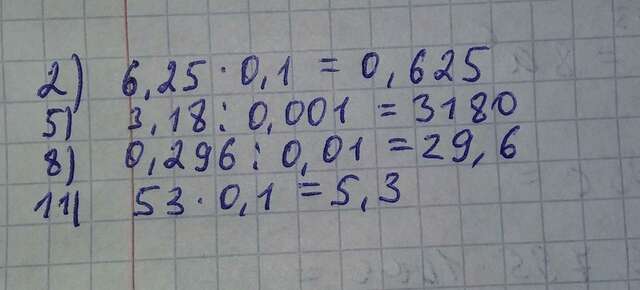 2) 6,25 · 0,1 = 0,625
5) 3,18 : 0,001 = 3180
8) 0,296 : 0,01 = 29,6
11) 53 · 0,1 = 5,3